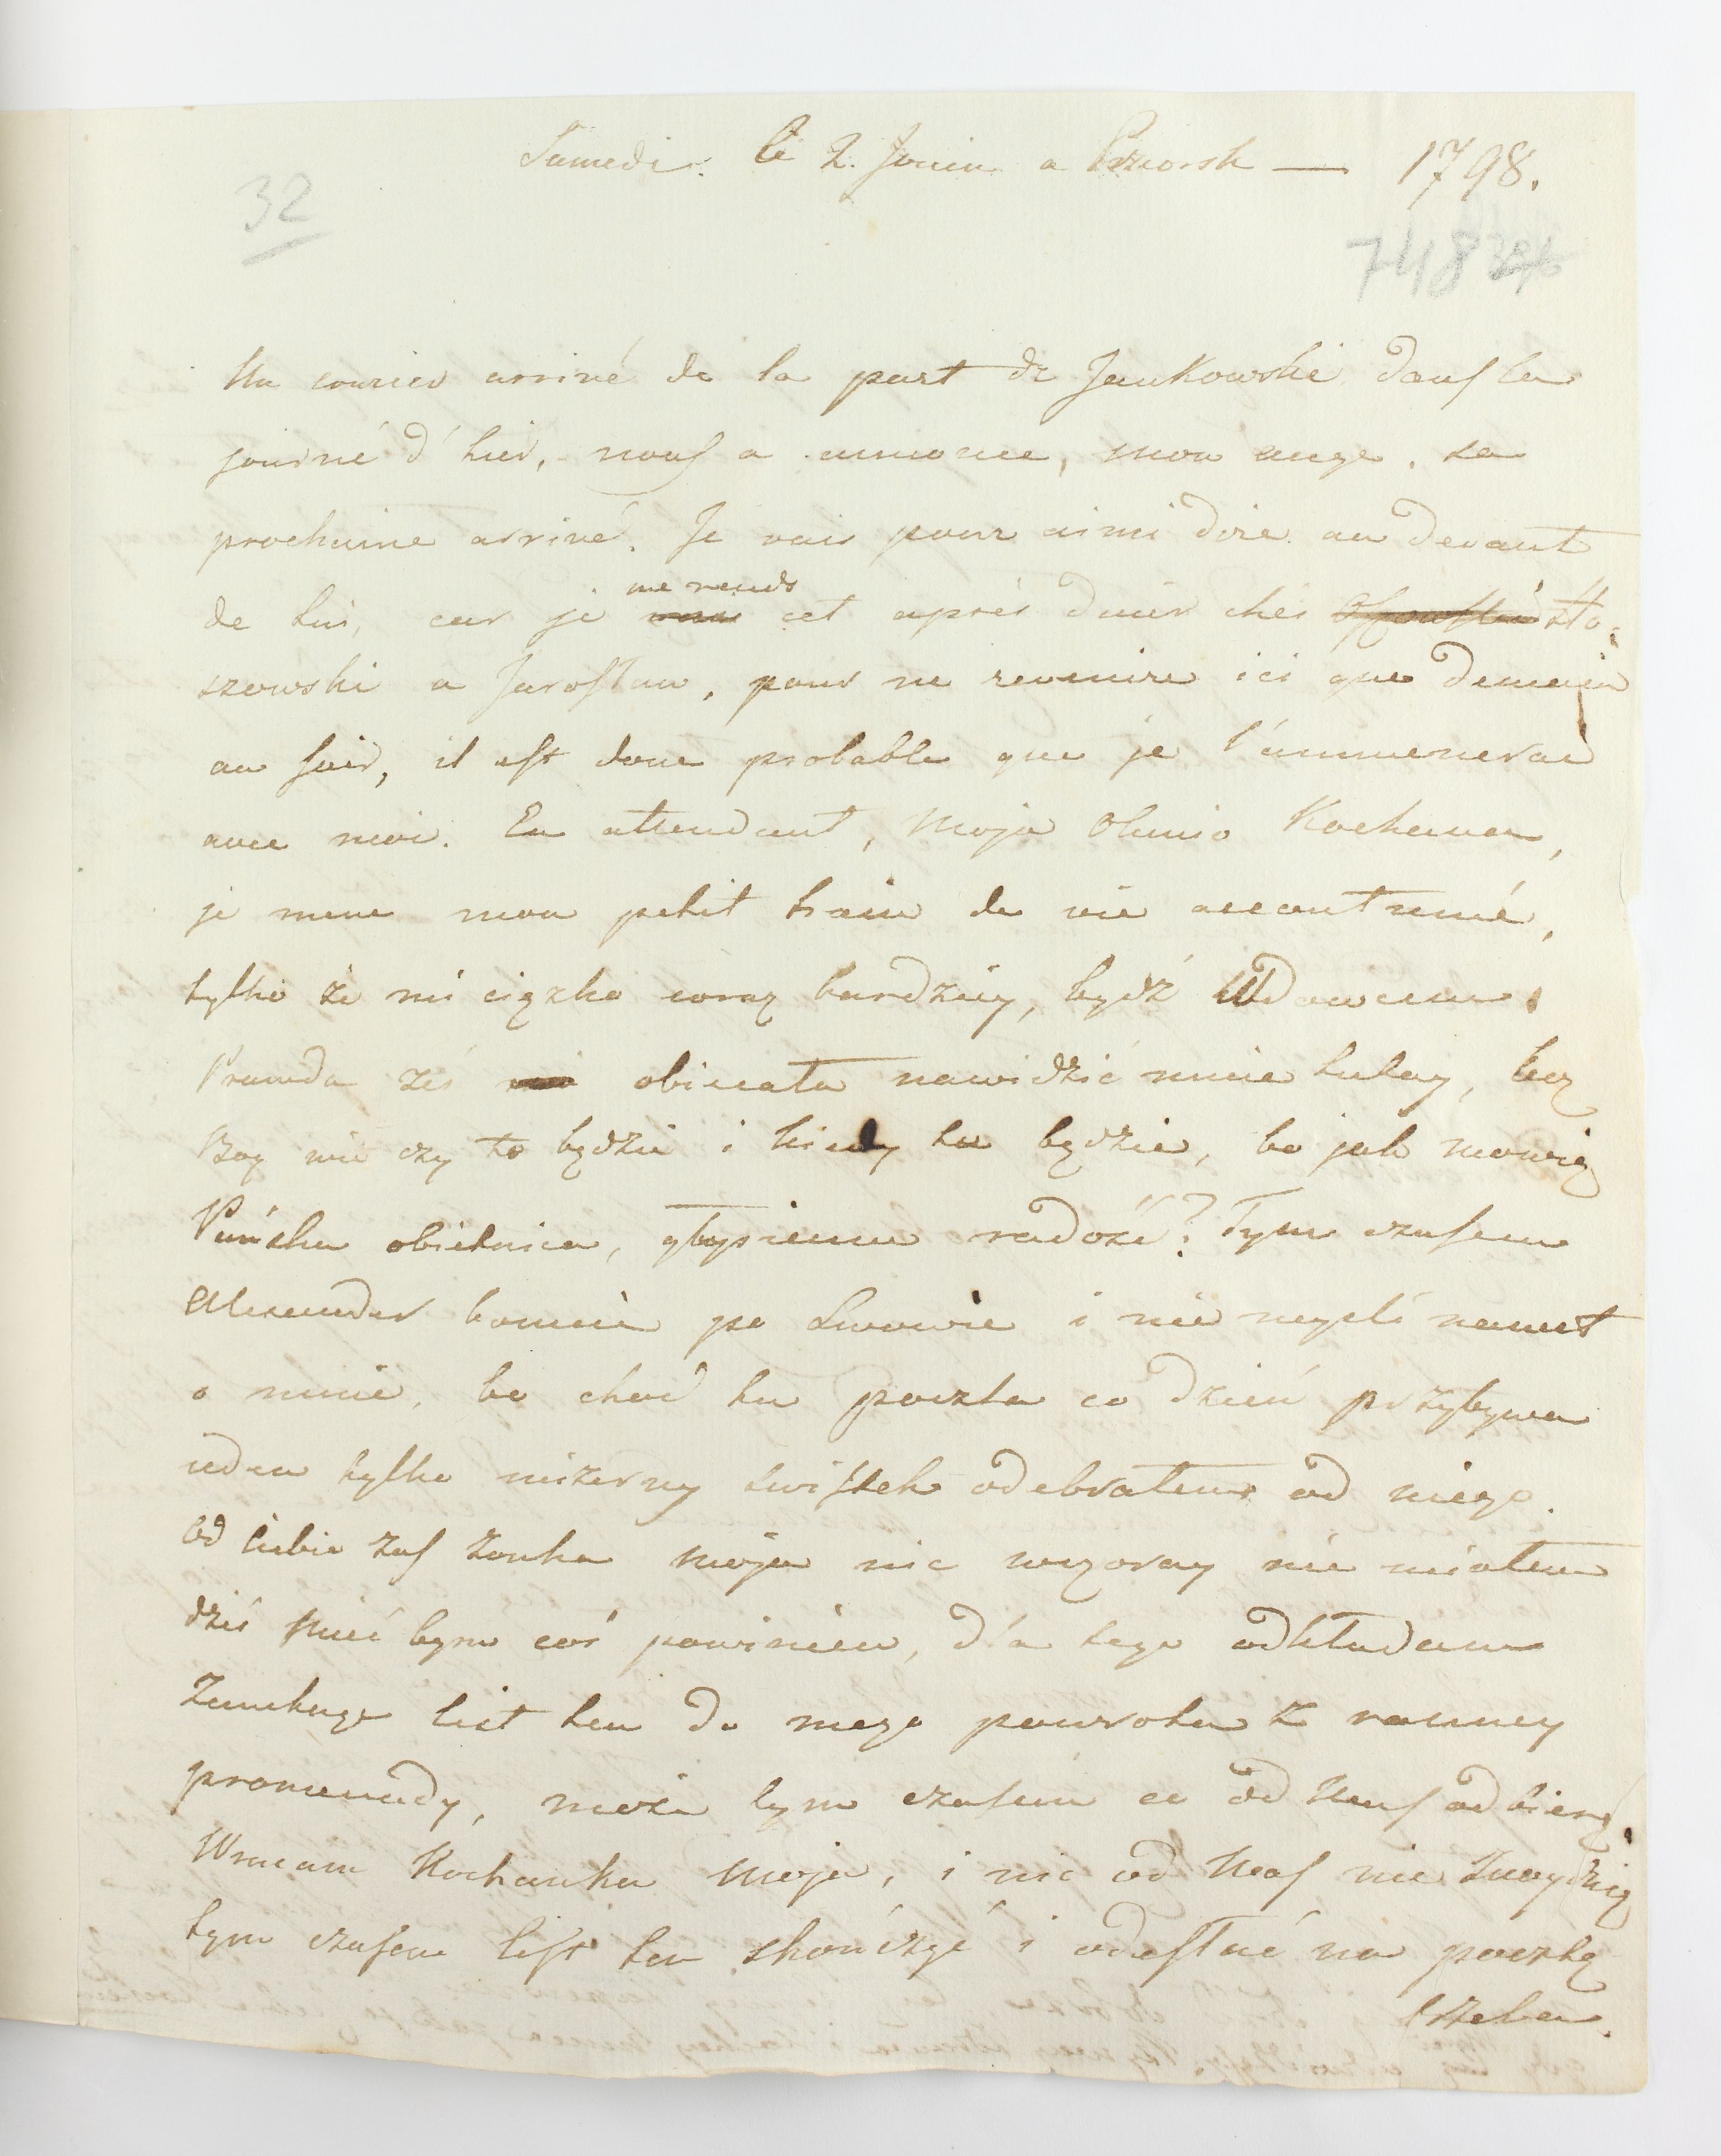 Samedi. le 2. Jouin a Przworsk — 1798.
32
748
Un courier arrivé de la part de Jankowski dans la
journé d'hier, nous a annonce, mon ange, sa
prochaine arrivé. Je vais pour ainsi dire au devant
me rends
de lui, car je cet après diner chés Sto:
szowski a Jaroslaw, pour ne revenire ici que demain
au soir, il est donc probable que je l'ammenerai
avec moi. En attendant, moja Olunio Kochana,
je mene mon petit train de vie accoutumé,
tylko że mi ciężko coraz bardziey, bydź Wdowcem.
Prawda żeś obiecała nawidzić mnie tutay, lecz
Bog wie czy to będzie i kiedy to będzie, bo jak mowią
Pańska obietnica, głupiemu radość? Tym czasem
Alexander bawi po Lwowie i nie mysli nawet
o mnie, bo choć tu poczta co dzień przybywa
ieden tylko mizerny swistek odebrałem od niego.
Od Ciebie zas Zonka moja nic wczoray nie miałem
dziś mieć bym coś powinien, dla tego odkładam
list ten do mego powrotu z ranney
promenady, może tym czasem co od Was odbiorę.
Wracam Kochanka moja, i nic od Was nie znayduię
tym czasem list ten skończyć i odesłać na pocztę
trzeba.